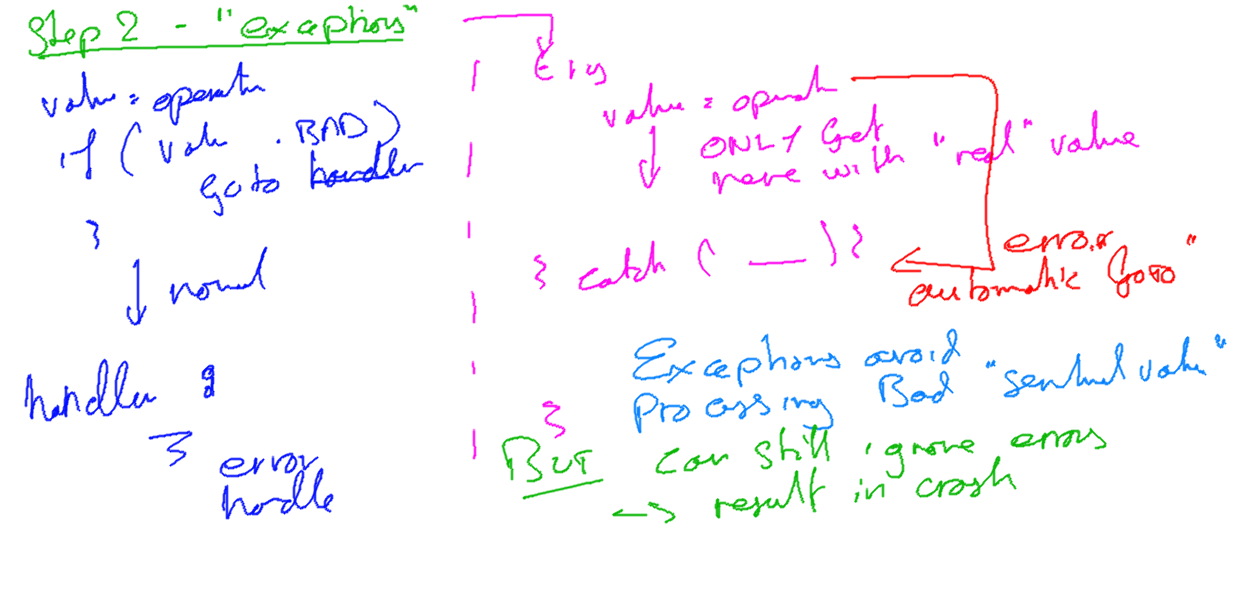 Step 2 - "exceptions"
value = operation
if ( value . BAD )
goto handler
}
normal
handler :
error
handle
try
value = operation
ONLY Get
here with "real" value
} catch ( __ ) {
error
automatic "GOTO"
}
Exceptions avoid
Processing Bad "sentinel value"
BUT can still ignore errors
-> result in crash